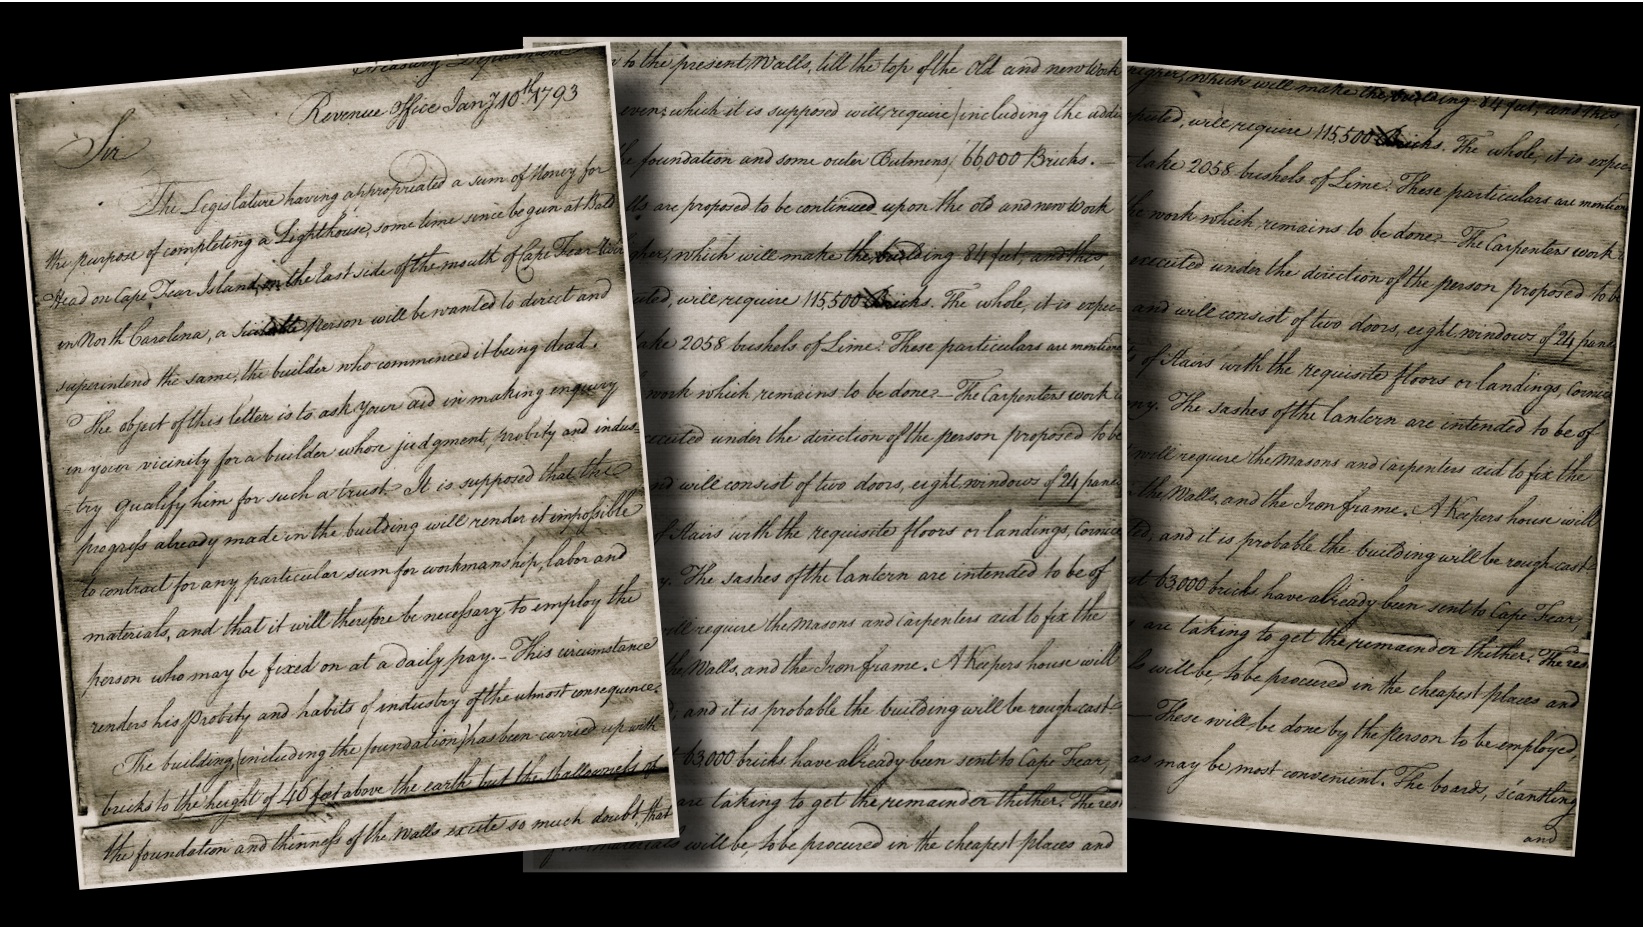 Treasury Department
Revenue Office Jany 10th 1793
Sir
The Legislature having appropriated a sum of Money for
the purpose of completing a Lighthouse, some time since begun at Bald
Head on Cape Fear Island, on the East side of the mouth of Cape Fear River
in North Carolina, a suitable person will be wanted to direct and
superintend the same, the builder who commenced it being dead.
The object of this letter is to ask your aid in making enquiry
in your vicinity for a builder whose judgment, probity and indus-
try qualify him for such a trust. It is supposed that the
progress already made in the building will render it impossible
to contract for any particular sum for workmanship, labor and
materials, and that it will therefore be necessary to employ the
person who may be fixed on at a daily pay. – This circumstance
renders his Probity and habits of industry of the utmost consequence.
The building (including the foundation) has been carried up with
bricks to the height of 40 feet above the earth but the shallowness of
the foundation and thinness of the Walls excite so much doubt, that
to the present Walls, till the top of the Old and new Work
even; which it is supposed will require (including the addi
foundation and some outer Butmens) 66000 Bricks. —
are proposed to be continued upon the old and new Work
higher, which will make the building 84 feet, and this,
will require 115,500 Bricks. The whole, it is expec-
take 2058 bushels of Lime. These particulars are mention
work which remains to be done. — The Carpenters work
executed under the direction of the person proposed to be
and will consist of two doors, eight windows of 24 pane
of Stairs with the requisite floors or landings, Cornice
The sashes of the lantern are intended to be of
will require the Masons and Carpenters aid to fix the
the Walls, and the Iron frame. A Keepers house will
and it is probable the building will be rough-cast.
63,000 bricks have already been sent to Cape Fear,
are taking to get the remainder thither. The res
materials will be, to be procured in the cheapest places and
higher, which will make the building 84 feet, and this,
will require 115,500 Bricks. The whole, it is expec-
take 2058 bushels of Lime. These particulars are mention
work which remains to be done. — The Carpenters work
executed under the direction of the person proposed to be
and will consist of two doors, eight windows of 24 pane
of Stairs with the requisite floors or landings, Cornice
The sashes of the lantern are intended to be of
will require the Masons and Carpenters aid to fix the
the Walls, and the Iron frame. A Keepers house will
and it is probable the building will be rough-cast.
63,000 bricks have already been sent to Cape Fear,
are taking to get the remainder thither. The res
will be, to be procured in the cheapest places and
— These will be done by the Person to be employed,
as may be most convenient. The boards, scantling
and